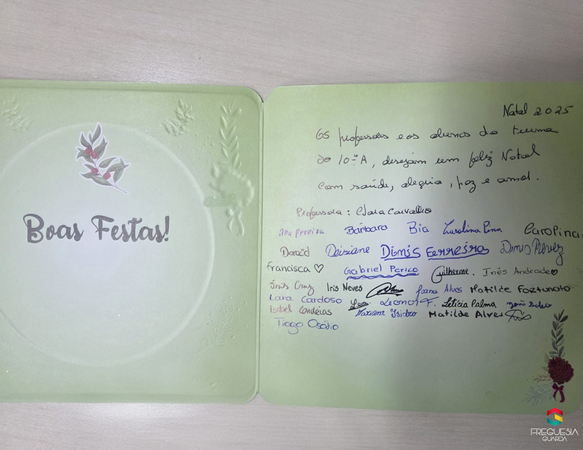 Boas Festas!
Natal 2025
Os professores e os alunos da turma
do 10.º A, desejam um feliz Natal
com saúde, alegria, paz e amor.
Professora: Clara Carvalho
Ana Ferreira Bárbara Bia Carolina Carolina
David Daisiane Dinis Ferreira Dinis
Francisca ♡ Gabriel Perico Guilherme Inês Andrade
Inês Cruz Iris Neves Joana Alves Matilde Fortunato
Lara Cardoso Leonor F. Letícia Palma
Isabel Candeias Mariana Isidro Matilde Alves
Tiago Osório
FREGUESIA
GUARDA